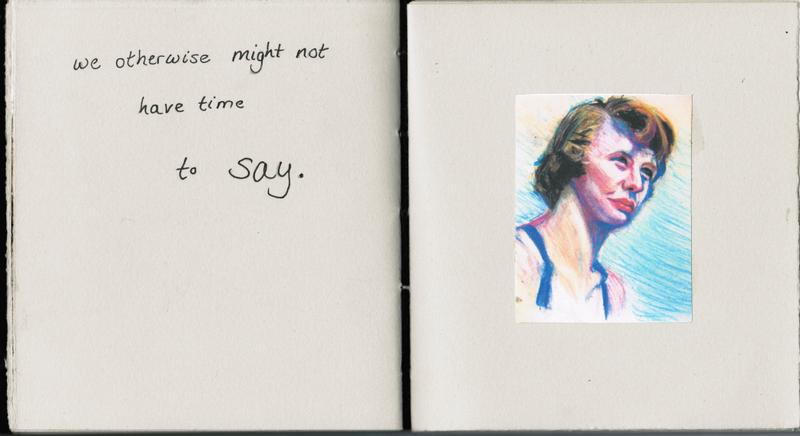 we otherwise might not
have time
to say.